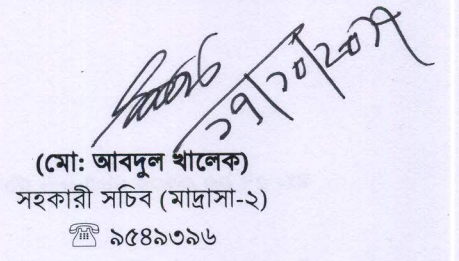 ১৭/১০/২০১৭
(মো: আবদুল খালেক)
সহকারী সচিব (মাদ্রাসা-২)
☏ ৯৫৪৯৩৯৬